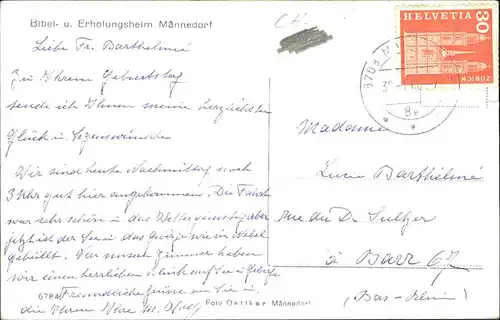 Bibel- u. Erholungsheim Männedorf
Liebe Fr. Barthelmé
Zu Ihrem Geburtstag
sende ich Ihnen meine herzlichsten
Glück u. Segenswünsche
Wir sind heute Nachmittag nach
3 Uhr gut hier angekommen. Die Fahrt
war sehr schön u das Wetter aber
jetzt ist der See u das wie in Nebel
gehüllt. Von unserem Zimmer haben
wir einen herrlichen Blick auf See u Gebirge
Freundliche Grüsse an Sie u.
die Ihren Ihre M.
6784
Foto Oetiker Männedorf
HELVETIA
30
ZÜRICH
8708
8e
Madame
Lucie Barthélmé
rue du Dr Sultzer
à Barr 67
(Bas-Rhin)